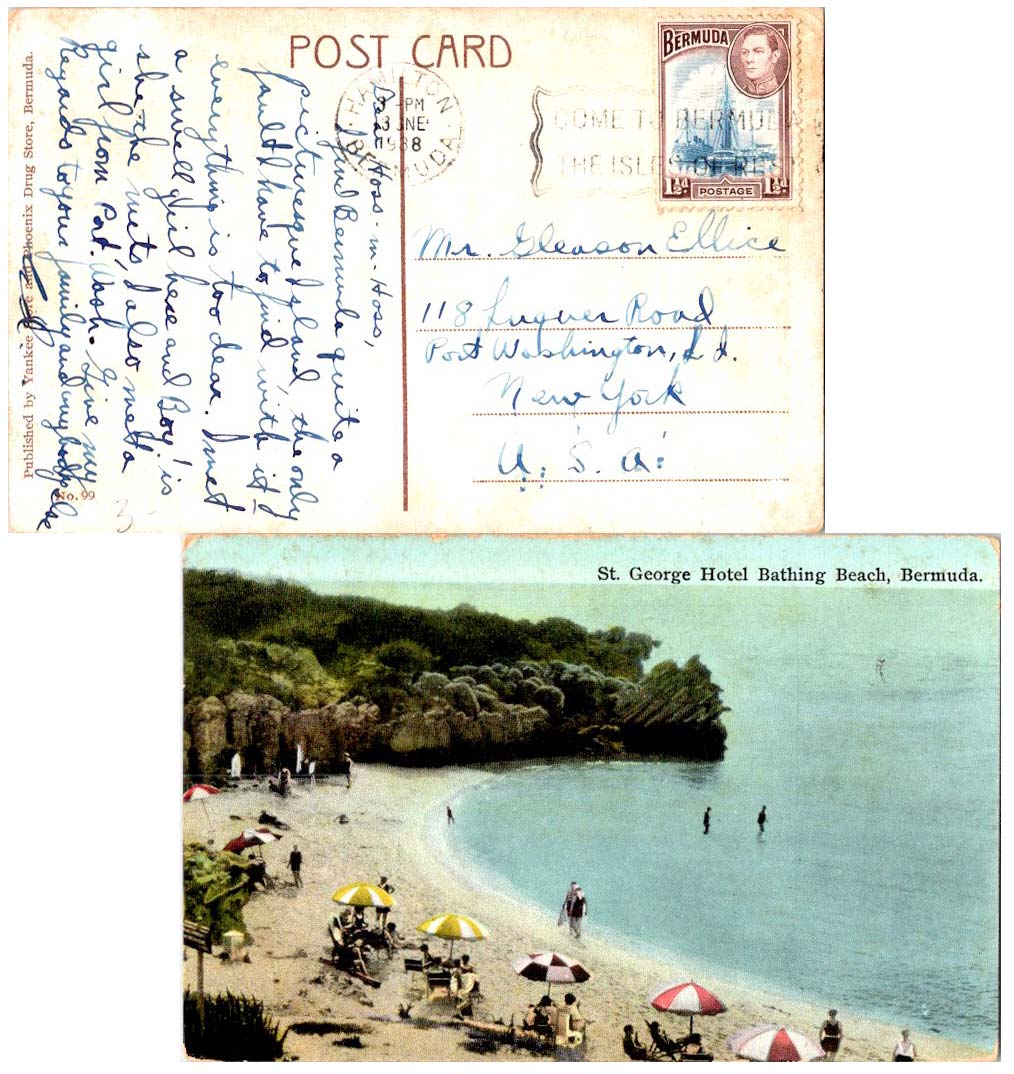 POST CARD
HAMILTON
3 - PM
3 JNE
1938
BERMUDA
COME TO BERMUDA
THE ISLES OF REST
BERMUDA
1½d POSTAGE 1½d
Dear Hoss-m-Hoss,
Find Bermuda quite a
picturesque Island, the only
fault I have to find with it
everything is too dear. I met
a swell girl here and Boy! is
she the nuts, I also met a
girl from Port. Wash. Give my
Regards to your family and anybody else
Mr. Gleason Ellice
118 Luquer Road
Port Washington, L.I.
New York
U. S. A.
Published by Yankee Store and Phoenix Drug Store, Bermuda.
No. 99
3
St. George Hotel Bathing Beach, Bermuda.